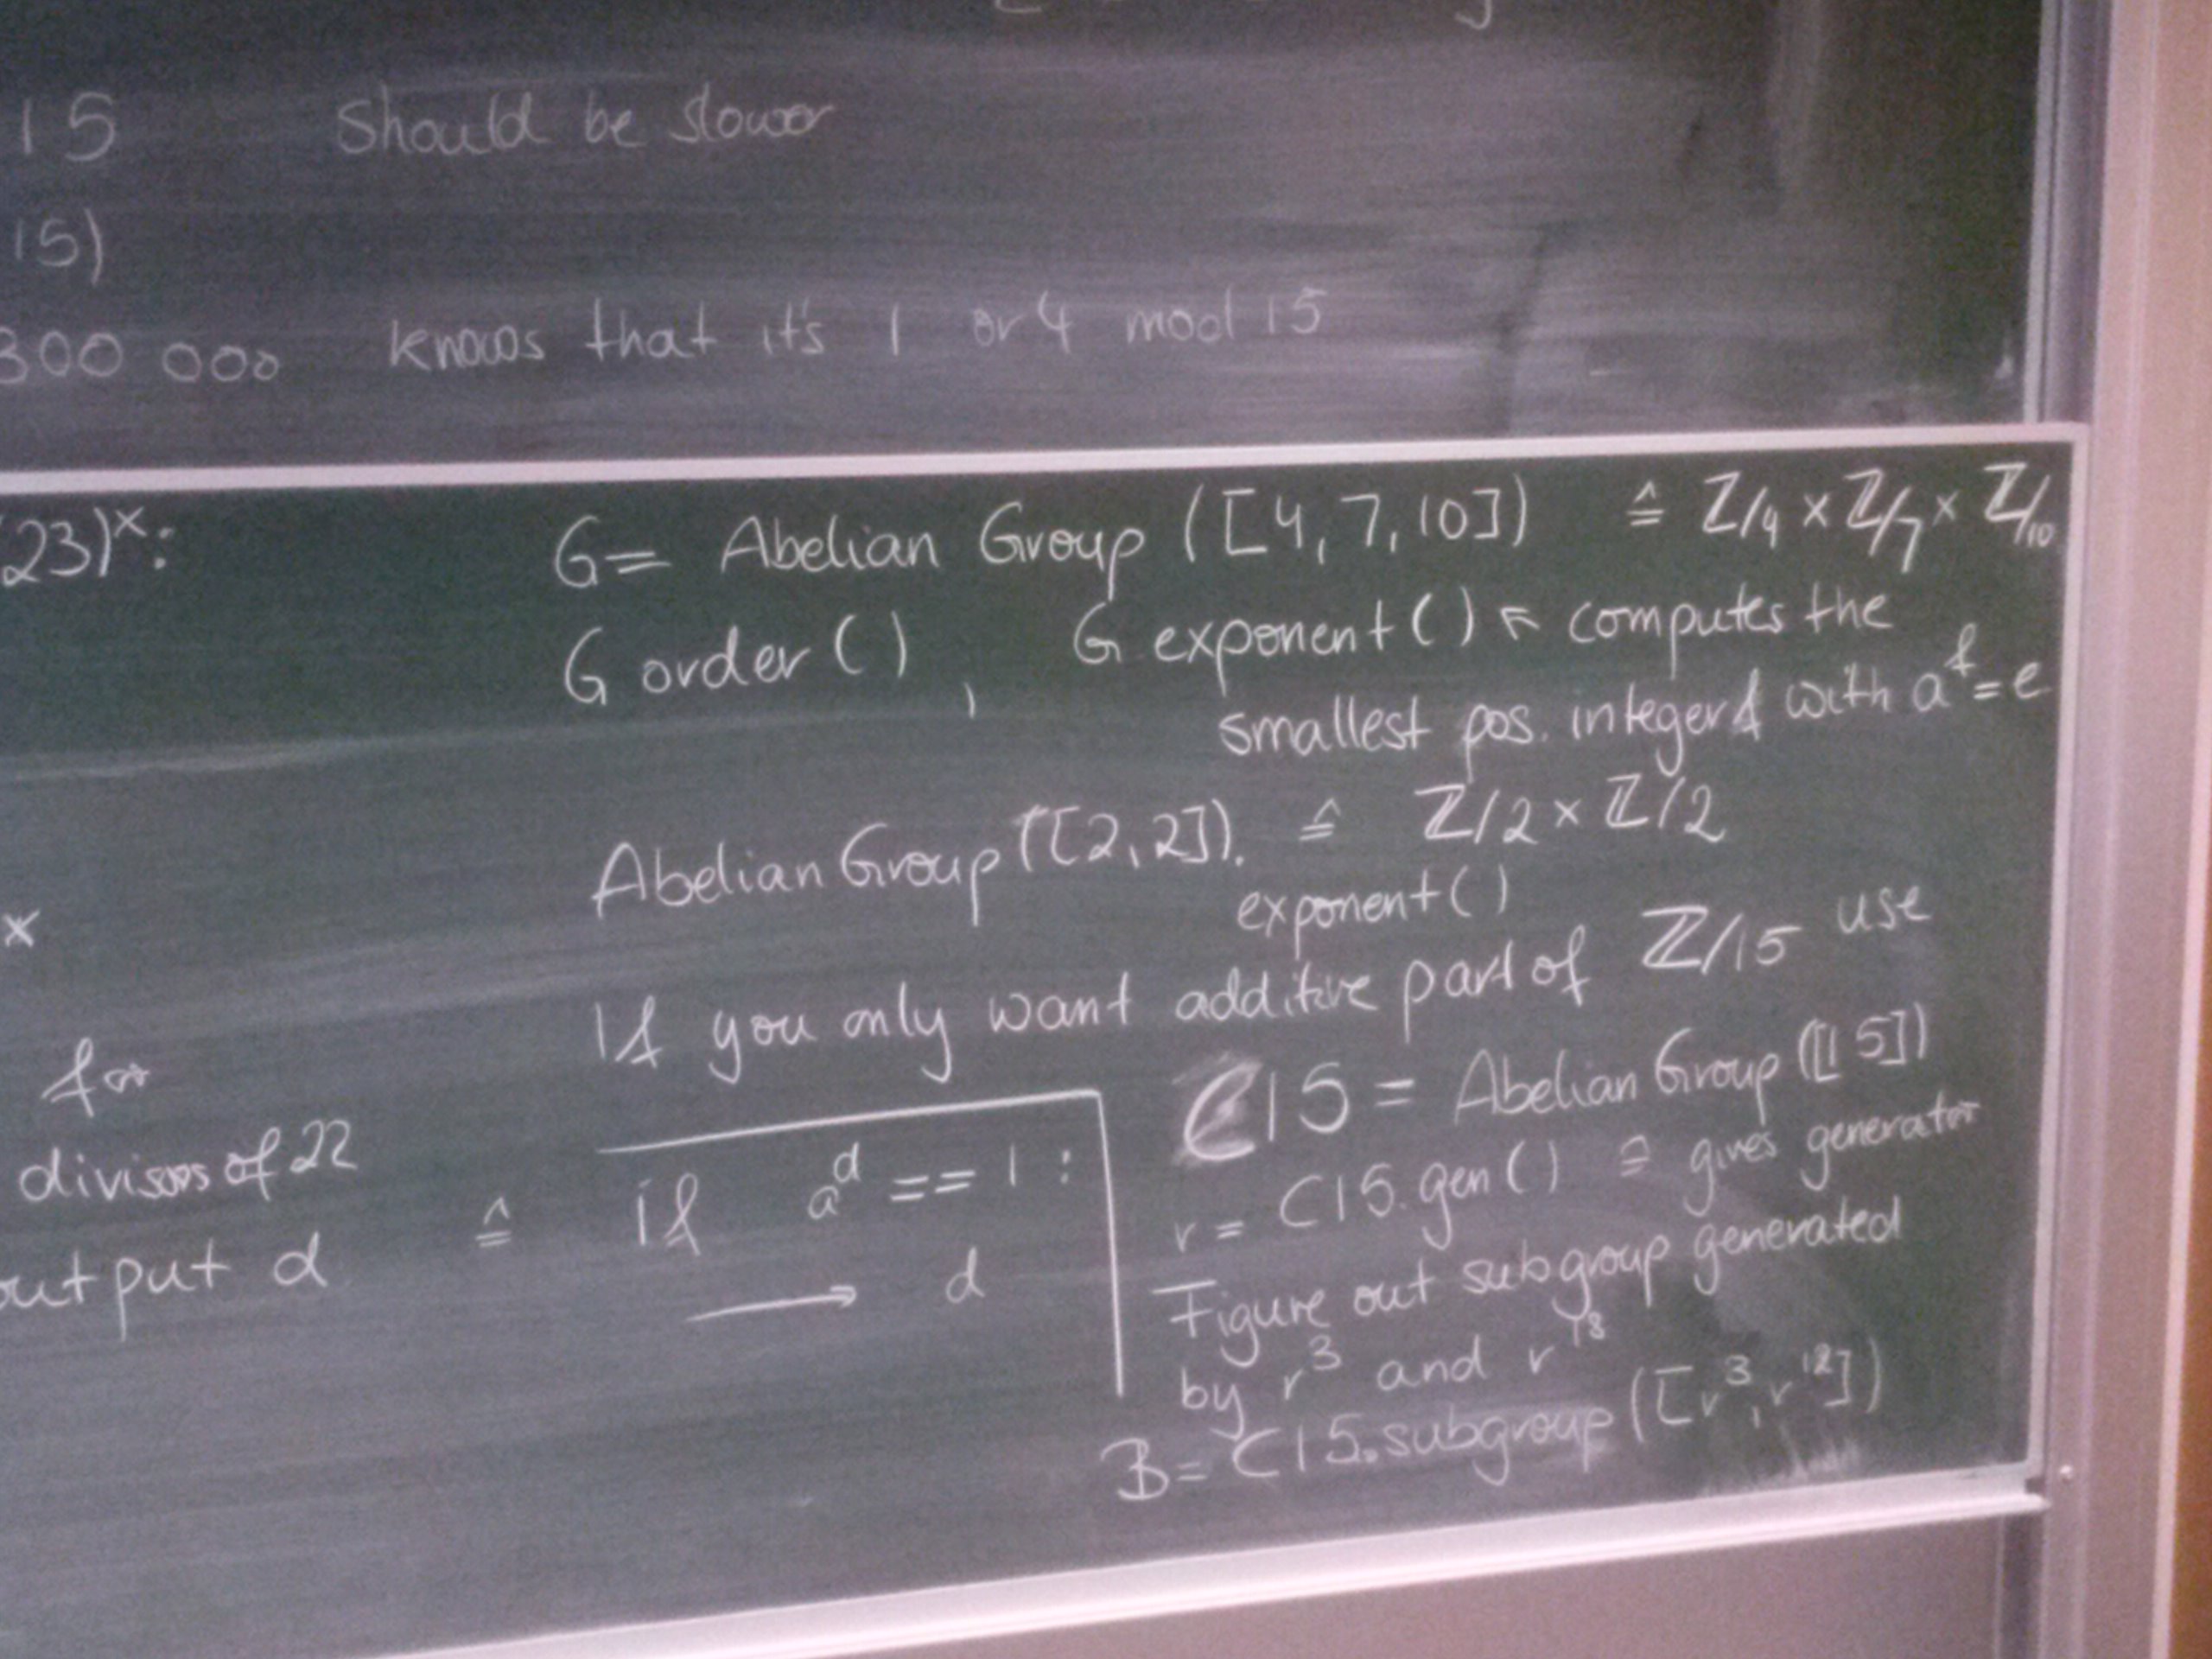 15 Should be slower
15)
300 000 knows that it's 1 or 4 mod 15
23)^x:
G = Abelian Group ([4,7,10]) ≙ ℤ/4 × ℤ/7 × ℤ/10
G order () , G exponent () ↖ computes the
smallest pos. integer f with a^f = e
Abelian Group ([2,2]). ≙ ℤ/2 × ℤ/2
exponent ()
x
If you only want additive part of ℤ/15 use
for
divisors of 22
output d ≙ if a^d == 1 :
→ d
C15 = Abelian Group ([15])
r = C15.gen () ≙ gives generator
Figure out subgroup generated
by r^3 and r^18
B = C15.subgroup ([r^3, r^12])